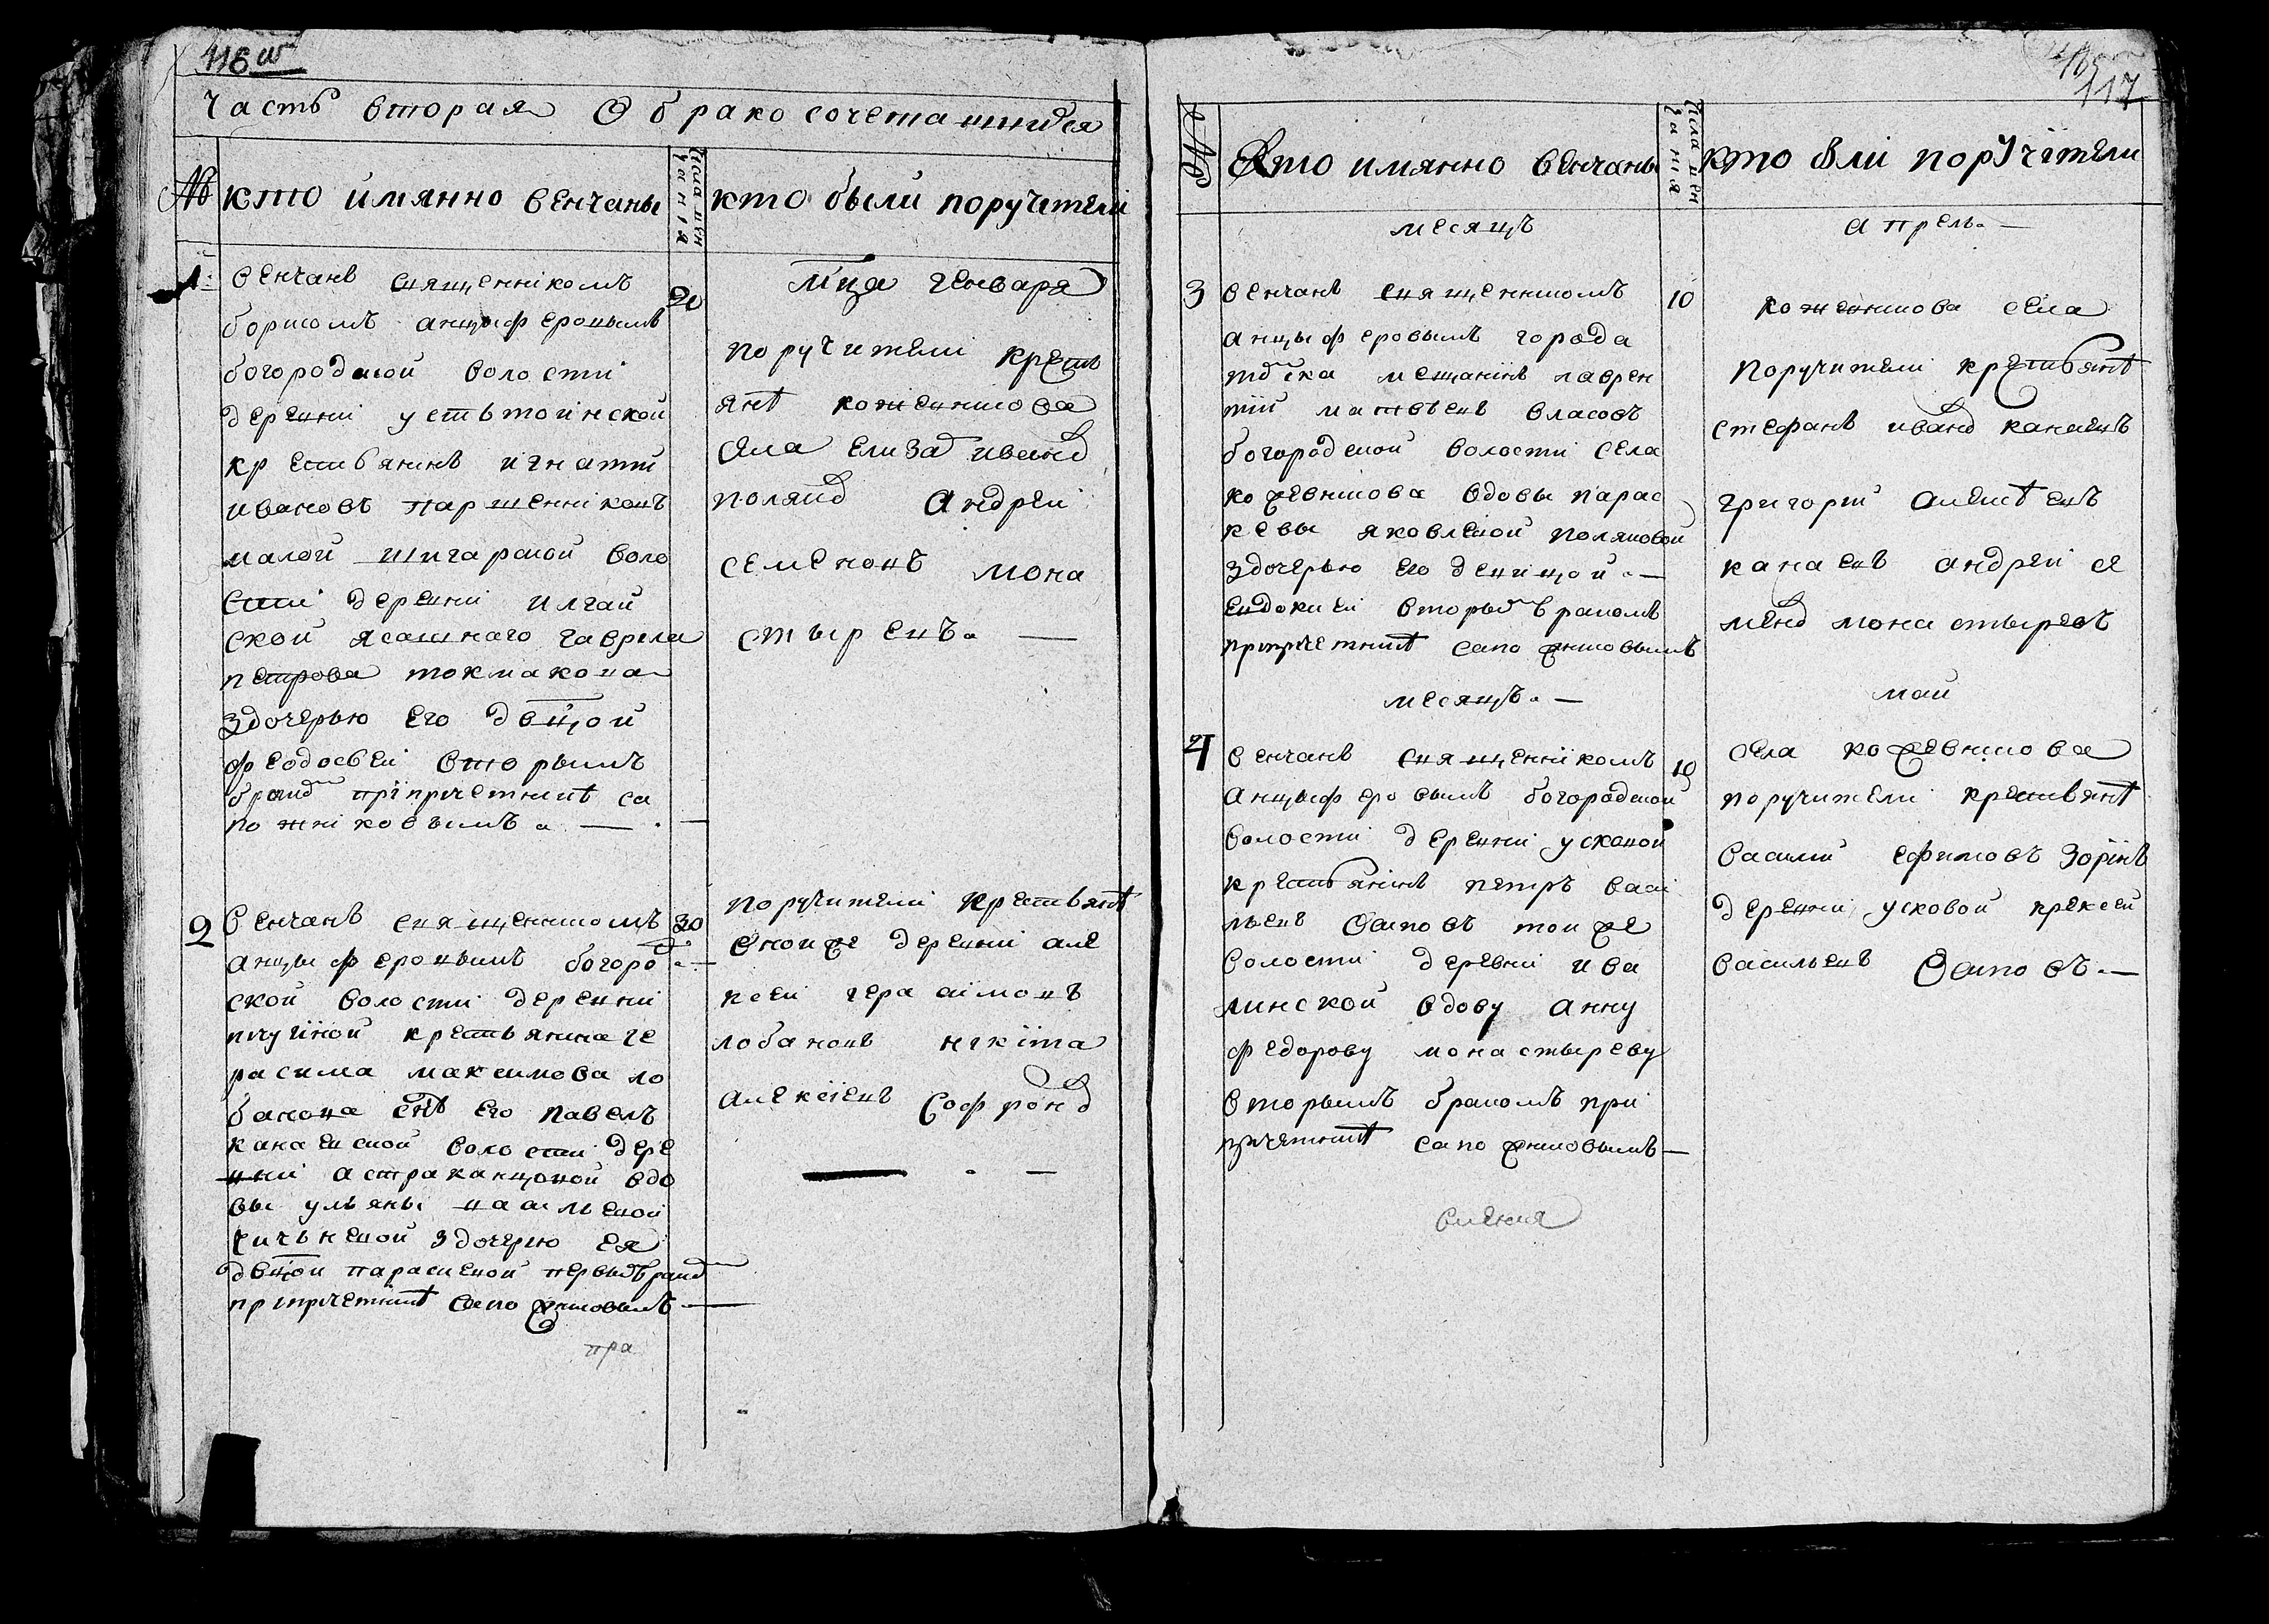 116 об
Часть вторая О бракосочетавшихся
№ кто имянно венчаны
числа вен
чания
кто были поручители
мца генваря
1. венчанъ священникомъ 20
борисомъ анцыферовымъ
богородской волости
деревни устьтоинской
крестьянинъ игнатии
ивановъ паршенниковъ
малой шигарской воло
сти деревни илгаи
ской ясашнаго гаврила
петрова токмакова
здочерью его девцой
феодосьеи вторымъ
бракомъ при причетникѣ са
пожниковымъ
поручители кресть
янѣ кожевникова
села елизаръ ивановъ
поляковъ андреи
семеновъ мона
стыревъ
2 венчанъ священникомъ 30
анцыферовымъ богород
ской волости деревни
крестьянина ге
расима максимова ло
банова снъ его павелъ
канаевской волости дере
вни астраханцовой вдо
вы ульяны васильевой
здочерию ея
девцои парасковеи первымъ бракомъ
при причетникѣ сапожниковымъ
поручители крестьянѣ
оной же деревни але
ксеи герасимовъ
лобановъ никита
алексеевъ софроновъ
пра
117
№ Кто имянно венчаны
числа вен
чания
кто были поручители
месяцъ
апрель
3 венчанъ священникомъ 10
анцыферовымъ города
томска мещанинъ лаврен
тии матвеевъ власовъ
богородской волости села
кожевникова вдовы парас
кевы яковлевой поляковой
здочерью его девицой
евдокиеи вторымъ бракомъ
при причетникѣ сапожниковымъ
кожевникова села
поручители крестьянѣ
стефанъ ивановъ канаевъ
григории алексѣевъ
канаевъ андреи се
меновъ монастыревъ
месяцъ
маи
4 венчанъ священникомъ 10
анцыферовымъ богородской
волости деревни усковой
крестьянинъ петръ васи
льевъ осиповъ тои же
волости деревни ива
линской вдову анну
федорову монастыреву
вторымъ бракомъ при
причетникѣ сапожниковымъ
села кожевникова
поручители крестьянѣ
василии ефимовъ зоринъ
деревни усковой алексеи
васильевъ осиповъ